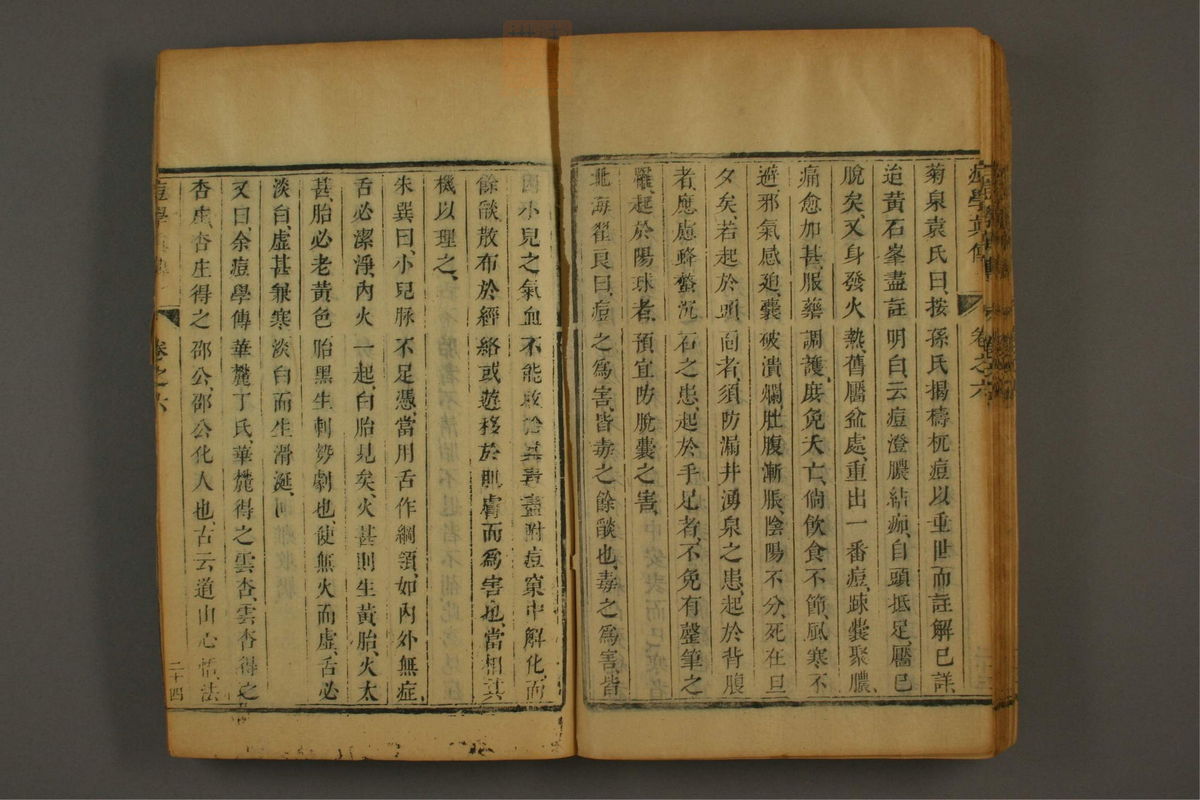 痘學真傳 卷之六
菊泉袁氏曰、按孫氏揚檮杌痘以重世而註解已詳、
迨黃石峯盡註明白、云痘澄膿結痂、自頭抵足、靨已
脫矣、又身發火熱、舊靨盆處、重出一番痘、疎囊聚膿、
痛愈加甚、服藥調護、庶免夭亡、倘飲食不節、風寒不
避、邪氣感延、囊破潰爛、肚腹漸脹、陰陽不分、死在旦
夕矣、若起於頭向者、須防漏井湧泉之患、起於背腹
者、應慮蜂蠆沉石之患、起於手足者、不免有罄筆之
罹、起於陽球者、預宜防脫囊之害、
北海翟良曰、痘之爲害、皆毒之餘燄也、毒之爲害、皆
因小兒之氣血不能收其毒盡附痘窠中解化、而
餘燄散布於經絡、或遊移於肌膚而爲害也、當相其
機以理之、
朱巽曰、小兒脉不足憑、當用舌作綱領、如內外無症、
舌必潔淨、內火一起、白胎見矣、火甚則生黃胎、火太
甚、胎必老黃色、胎黑生刺、勢劇也、使無火而虛、舌必
淡白、虛甚兼寒、淡白而生滑涎、
又曰、余痘學傳華麓丁氏、華麓得之雲杏、雲杏得之
杏虛、杏生得之邵公、邵公化人也、古云道由心悟、法
痘學真傳 卷之六 二十四